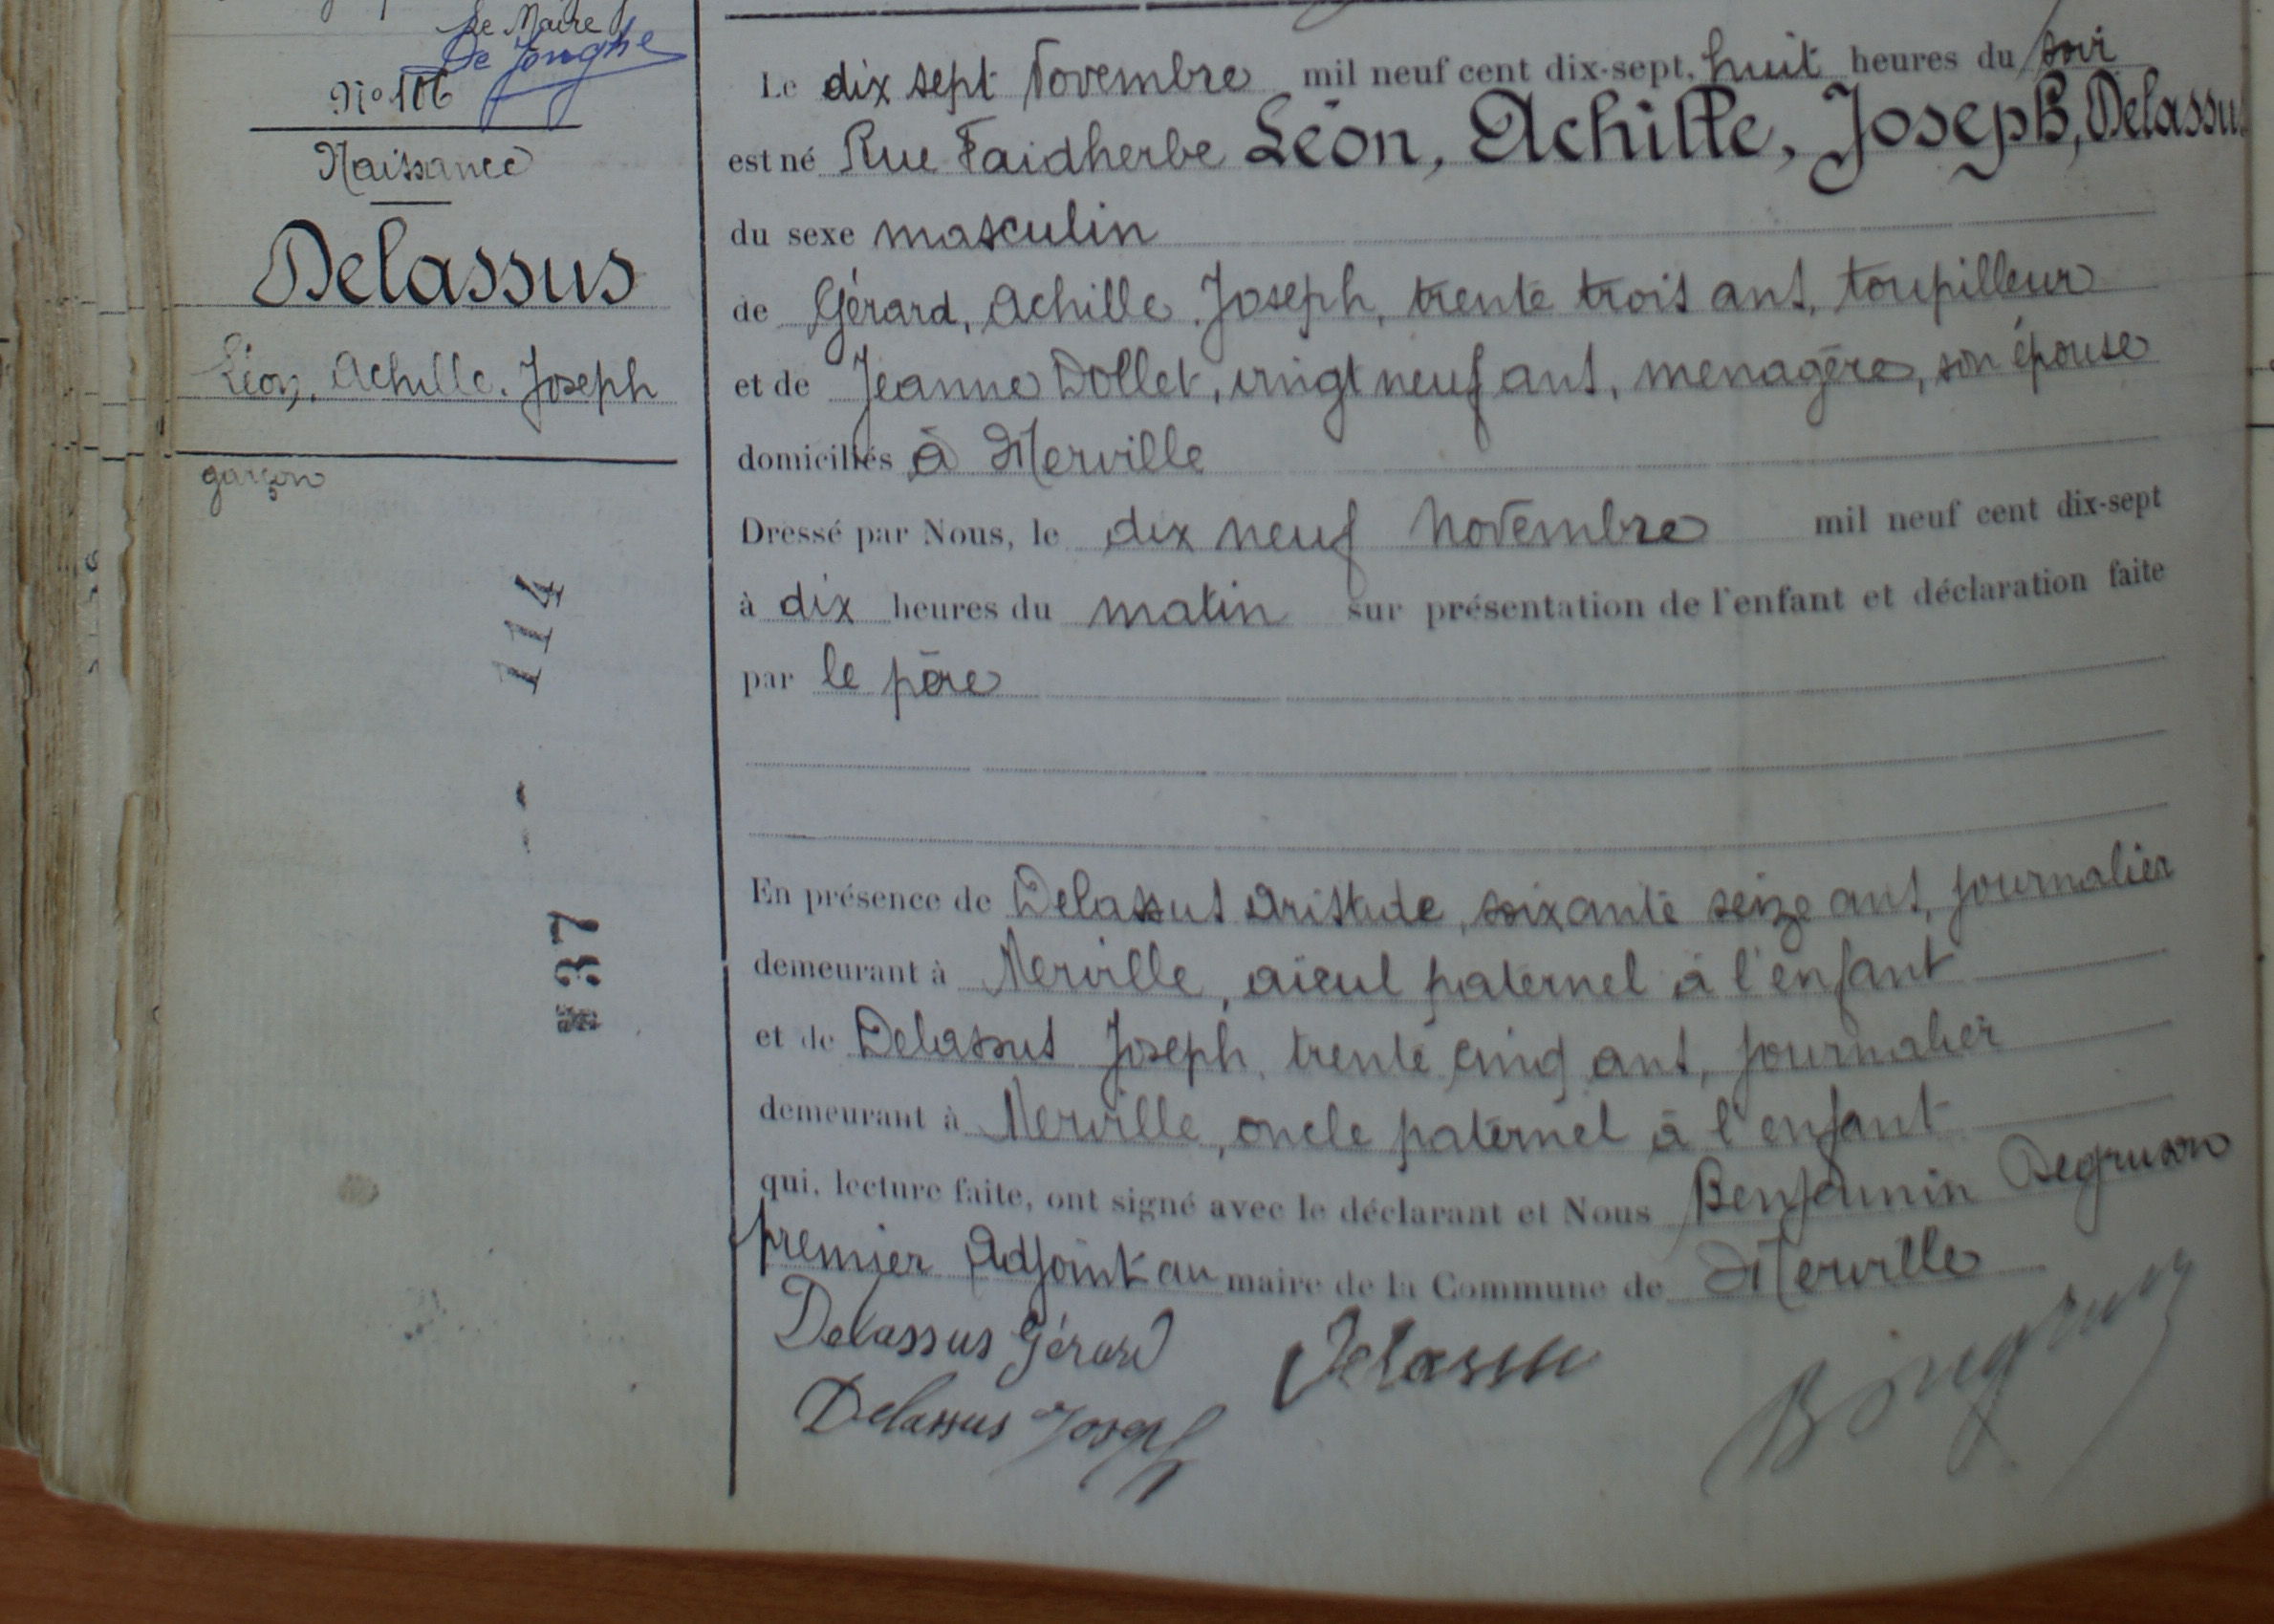 Le Maire
De Jonghe
N° 106
Naissance
Delassus
Léon, Achille, Joseph
garçon
114
37
Le dix sept Novembre mil neuf cent dix-sept, huit heures du soir
est né Rue Faidherbe Léon, Achille, Joseph, Delassus
du sexe masculin
de Gérard, Achille, Joseph, trente trois ans, toupilleur
et de Jeanne Dollet, vingt neuf ans, menagère, son épouse
domiciliés à Merville
Dressé par Nous, le dix neuf Novembre mil neuf cent dix-sept
à dix heures du matin sur présentation de l'enfant et déclaration faite
par le père
En présence de Delassus Aristide, soixante seize ans, journalier
demeurant à Merville, aïeul paternel à l'enfant
et de Delassus Joseph, trente cinq ans, journalier
demeurant à Merville, oncle paternel à l'enfant
qui, lecture faite, ont signé avec le déclarant et Nous Benjamin Degruson
premier Adjoint au maire de la Commune de Merville
Delassus Gérard
Delassus
Delassus Joseph